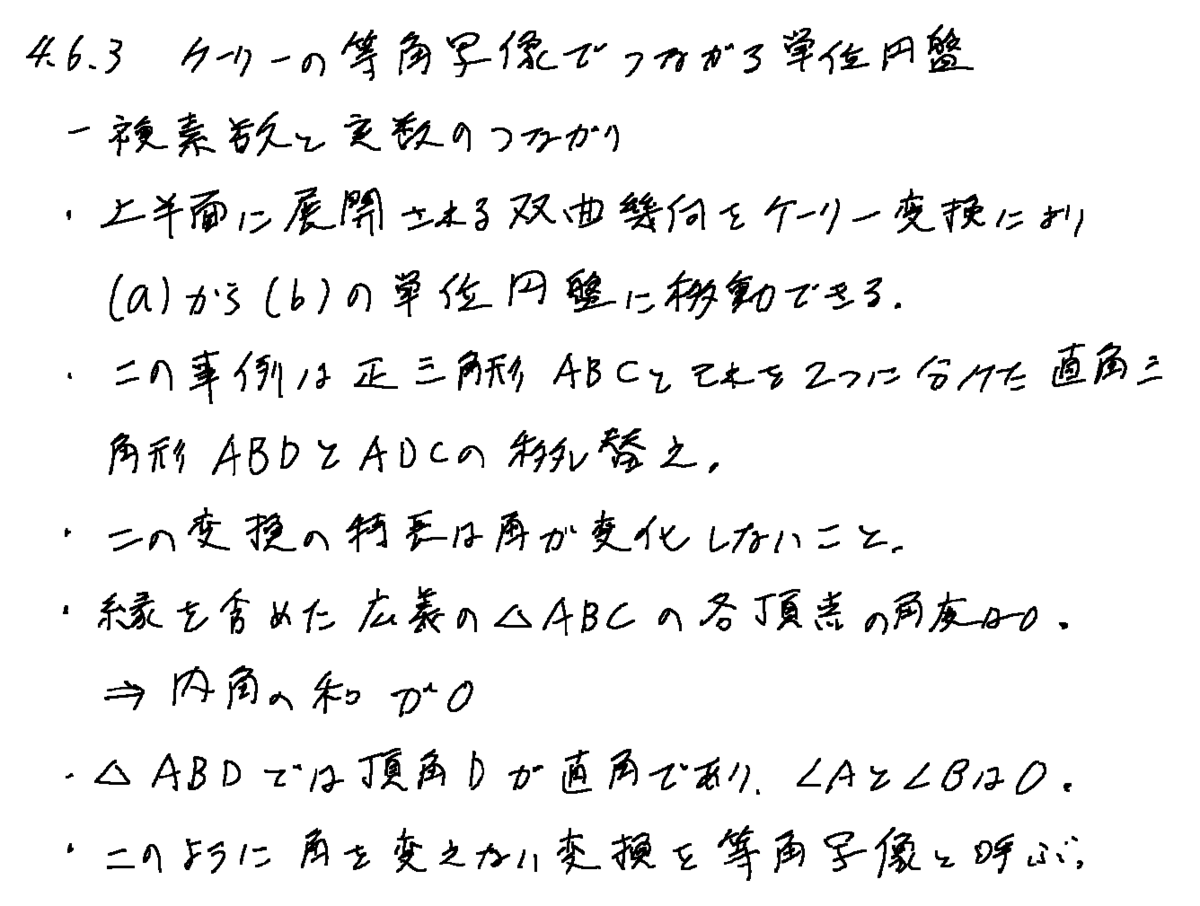 4.6.3 ケーリーの等角写像でつながる単位円盤
－複素数と実数のつながり
・上半面に展開される双曲幾何をケーリー変換により
(a)から(b)の単位円盤に移動できる.
・この事例は正三角形ABCとそれを2つに分けた直角三
角形ABDとADCの移し替え.
・この変換の特長は角が変化しないこと.
・縁を含めた広義の△ABCの各頂点の角度は0.
⇒ 内角の和が0
・△ABDでは頂角Dが直角であり、∠Aと∠Bは0.
・このように角を変えない変換を等角写像と呼ぶ.